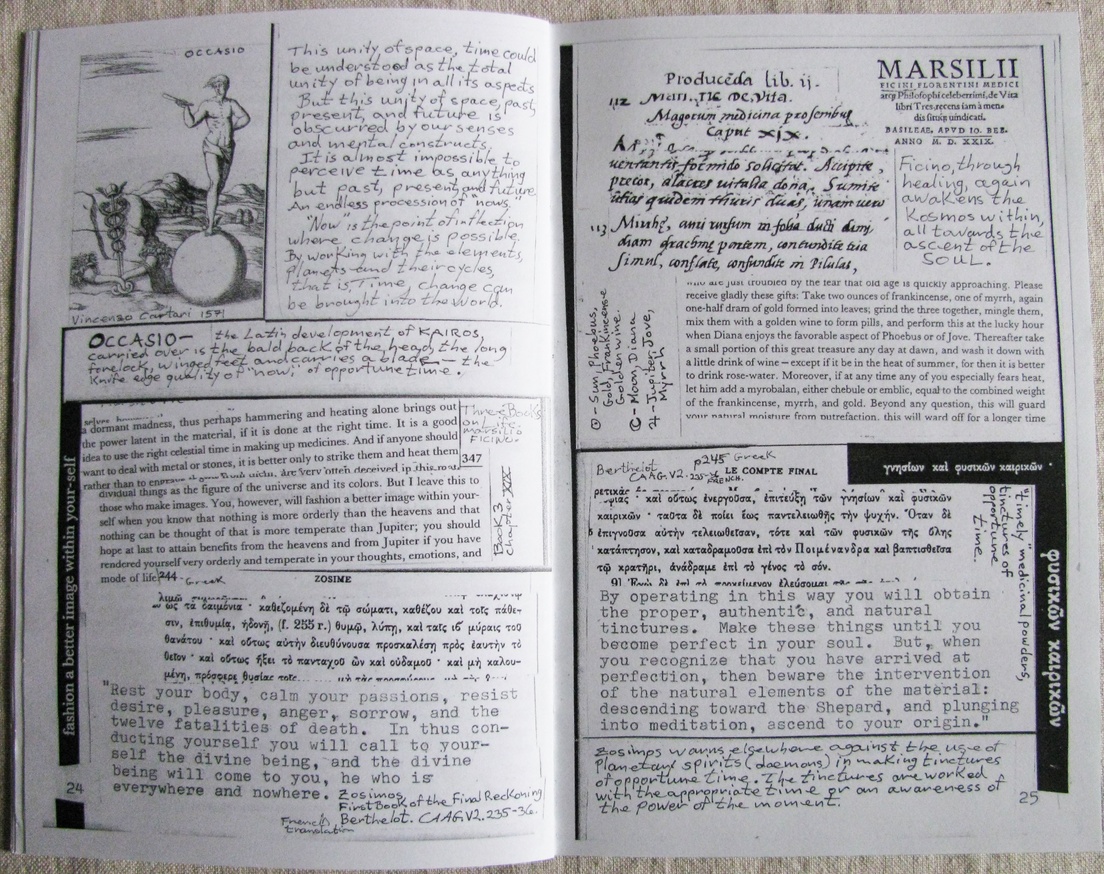 OCCASIO
This unity of space, time could
be understood as the total
unity of being in all its aspects
But this unity of space, past,
present, and future is
obscurred by our senses
and mental constructs.
It is almost impossible to
perceive time as anything
but past, present, and future
An endless procession of "nows."
"Now" is the point of inflection
where change is possible.
By working with the elements,
planets and their cycles,
that is, Time, change can
be brought into the world.
Vincenzo Cartari 1571
OCCASIO— the Latin development of KAIROS,
carried over is the bald back of the head, the long
forelock, winged feet and carries a blade — the
Knife edge quality of "now," of opportune time.
a dormant madness, thus perhaps hammering and heating alone brings out
the power latent in the material, if it is done at the right time. It is a good
idea to use the right celestial time in making up medicines. And if anyone should
want to deal with metal or stones, it is better only to strike them and heat them
rather than to engrave
dividual things as the figure of the universe and its colors. But I leave this to
those who make images. You, however, will fashion a better image within your-
self when you know that nothing is more orderly than the heavens and that
nothing can be thought of that is more temperate than Jupiter; you should
hope at last to attain benefits from the heavens and from Jupiter if you have
rendered yourself very orderly and temperate in your thoughts, emotions, and
mode of life.
Three Books
on Life
Marsilio
FICINO.
347
Book 3
Chapter XIX
fashion a better image within your-self
244 - Greek
ZOSIME
ὡς τὰ δαιμόνια · καθεζομένη δὲ τῷ σώματι, καθέζου καὶ τοῖς πάθε-
σιν, ἐπιθυμίᾳ, ἡδονῇ, (f. 255 r.) θυμῷ, λύπῃ, καὶ ταῖς ιβ´ μοίραις τοῦ
θανάτου · καὶ οὕτως αὐτὴν διευθύνουσα προσκαλέσῃ πρὸς ἑαυτὴν τὸ
θεῖον · καὶ οὕτως ἥξει τὸ πανταχοῦ ὢν καὶ οὐδαμοῦ · καὶ μὴ καλου-
μένη, πρόσφερε θυσίας
"Rest your body, calm your passions, resist
desire, pleasure, anger, sorrow, and the
twelve fatalities of death. In thus con-
ducting yourself you will call to your-
self the divine being, and the divine
being will come to you, he who is
everywhere and nowhere.
Zosimos
First Book of the Final Reckoning
Berthelot. CAAG.V2. 235-36.
French
translation
24
Producēda lib. ij.
112
De Vita.
Magorum medicina pro senibus
Caput xix.
uentantis formido solicitat. Accipite
precor, alacres uitalia dona. Sumite
utias quidem thuris duas, unam uero
113
diam drachmę portem, contundite tria
simul, conflate, confundite in Pilulas,
MARSILII
FICINI FLORENTINI MEDICI
atq; Philosophi celeberrimi, de Vita
libri Tres, recens iam à men-
dis situq; uindicati.
BASILEAE, APVD IO. BEB.
ANNO M. D. XXIX.
Ficino, through
healing, again
awakens the
Kosmos within,
all towards the
ascent of the
SOUL.
☉ - Sun, Phoebus,
Gold, Frankincense
Golden wine.
☾ - Moon, Diana
♃ - Jupiter, Jove,
Myrrh
who are just troubled by the fear that old age is quickly approaching. Please
receive gladly these gifts: Take two ounces of frankincense, one of myrrh, again
one-half dram of gold formed into leaves; grind the three together, mingle them,
mix them with a golden wine to form pills, and perform this at the lucky hour
when Diana enjoys the favorable aspect of Phoebus or of Jove. Thereafter take
a small portion of this great treasure any day at dawn, and wash it down with
a little drink of wine – except if it be in the heat of summer, for then it is better
to drink rose-water. Moreover, if at any time any of you especially fears heat,
let him add a myrobalan, either chebule or emblic, equal to the combined weight
of the frankincense, myrrh, and gold. Beyond any question, this will guard
your natural moisture from putrefaction, this will ward off for a longer time
Berthelot
CAAG.V2. 235-36
FRENCH.
p245 Greek
LE COMPTE FINAL
γνησίων καὶ φυσικῶν καιρικῶν ·
· καὶ οὕτως ἐνεργοῦσα, ἐπιτεύξῃ τῶν γνησίων καὶ φυσικῶν
καιρικῶν · ταῦτα δὲ ποίει ἕως παντελειωθῇς τὴν ψυχήν. Ὅταν δὲ
ἐπιγνοῦσα αὐτὴν τελειωθεῖσαν, τότε καὶ τῶν φυσικῶν τῆς ὕλης
κατάπτησον, καὶ καταδραμοῦσα ἐπὶ τὸν Ποιμένανδρα καὶ βαπτισθεῖσα
τῷ κρατῆρι, ἀνάδραμε ἐπὶ τὸ γένος τὸ σόν.
"Timely" medicinal powders,
tinctures of
opportune
time.
φυσικῶν καιρικῶν
By operating in this way you will obtain
the proper, authentic, and natural
tinctures. Make these things until you
become perfect in your soul. But, when
you recognize that you have arrived at
perfection, then beware the intervention
of the natural elements of the material:
descending toward the Shepard, and plunging
into meditation, ascend to your origin."
Zosimos warns elsewhere against the use of
planetary spirits (daemons) in making tinctures
of opportune time. The tinctures are worked
with the appropriate time or an awareness of
the power of the moment.
25